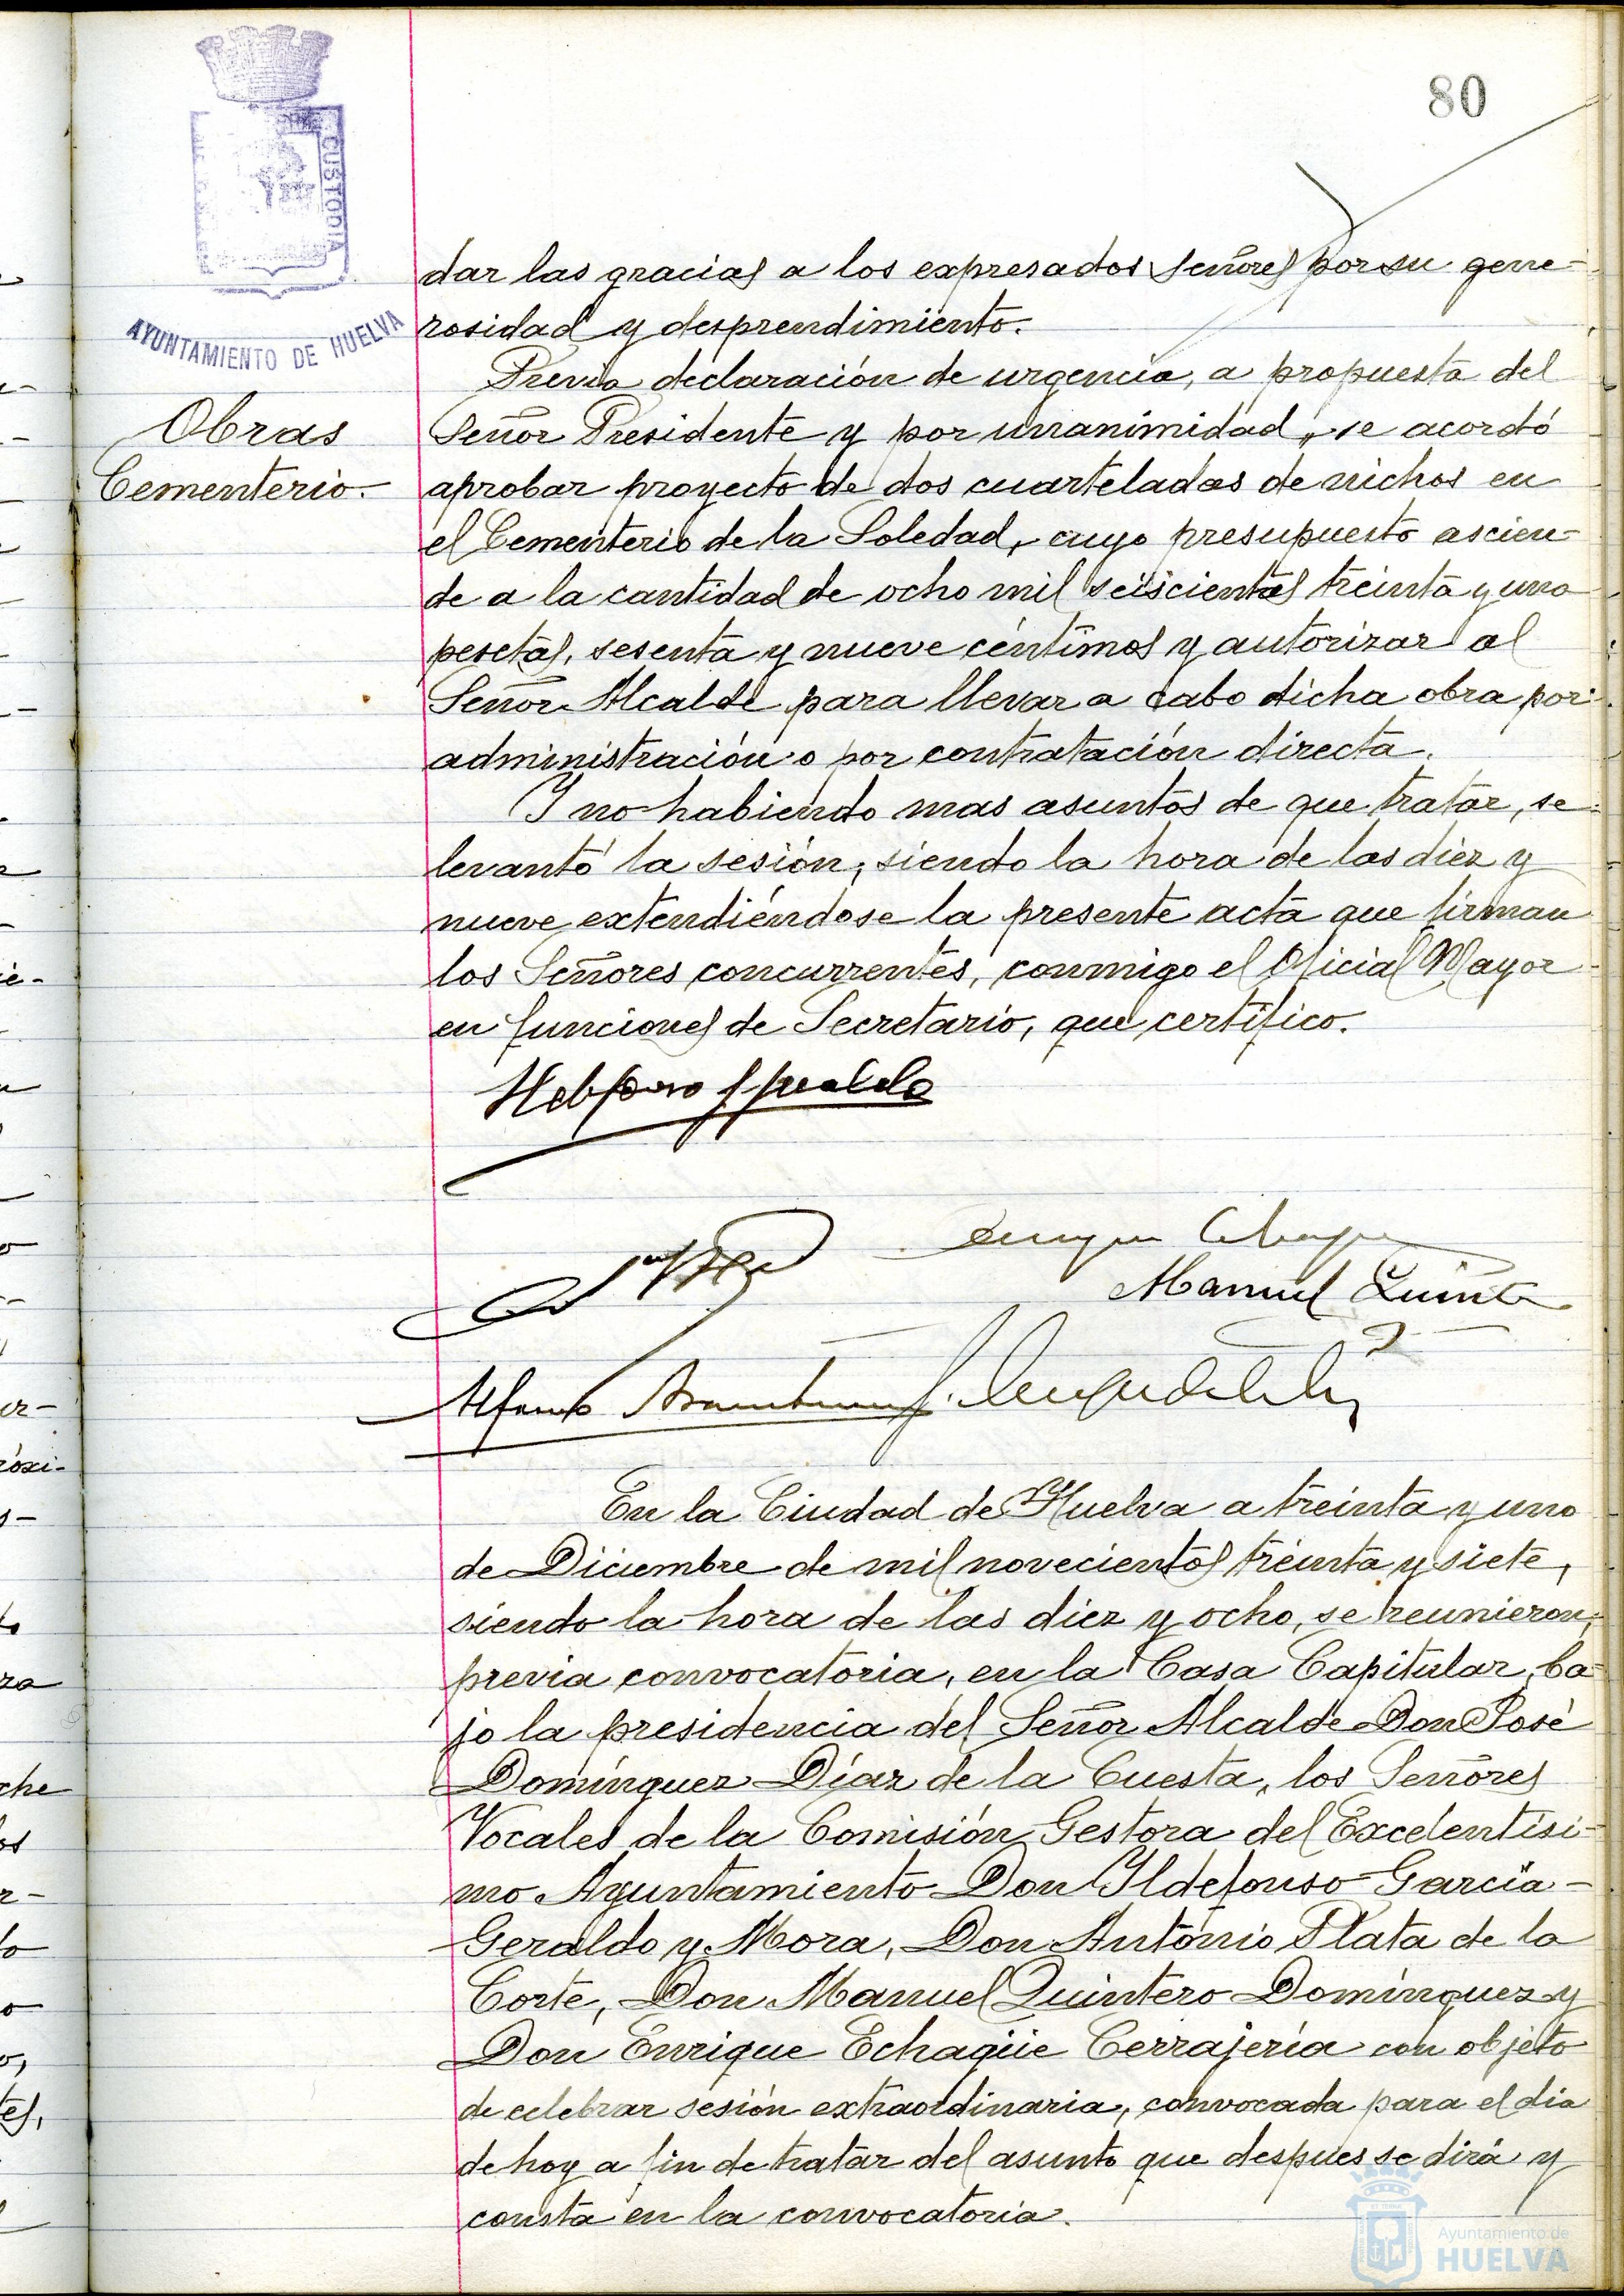 80
CUSTODIA
AYUNTAMIENTO DE HUELVA
dar las gracias a los expresados Señores por su gene-
rosidad y desprendimiento.
Obras
Cementerio.
Previa declaración de urgencia, a propuesta del
Señor Presidente y por unanimidad, se acordó
aprobar proyecto de dos cuarteladas de nichos en
el Cementerio de la Soledad, cuyo presupuesto ascien-
de a la cantidad de ocho mil seiscientas treinta y una
pesetas, sesenta y nueve céntimos y autorizar al
Señor Alcalde para llevar a cabo dicha obra por
administración o por contratación directa.
Y no habiendo mas asuntos de que tratar, se
levantó la sesión, siendo la hora de las diez y
nueve extendiéndose la presente acta que firman
los Señores concurrentes, conmigo el Oficial Mayor
en funciones de Secretario, que certifico.
Manuel Quinte
Alfonso
En la Ciudad de Huelva a treinta y uno
de Diciembre de mil novecientos treinta y siete,
siendo la hora de las diez y ocho, se reunieron,
previa convocatoria, en la Casa Capitular, ba-
jo la presidencia del Señor Alcalde Don José
Domínguez Díaz de la Cuesta, los Señores
Vocales de la Comisión Gestora del Excelentísi-
mo Ayuntamiento Don Yldefonso García-
Geraldo y Mora, Don António Plata de la
Corte, Don Manuel Quintero Domínguez y
Don Enrique Echagüe Cerrajería con objeto
de celebrar sesión extraordinaria, convocada para el día
de hoy a fin de tratar del asunto que despues se dirá y
consta en la convocatoria.
Ayuntamiento de
HUELVA